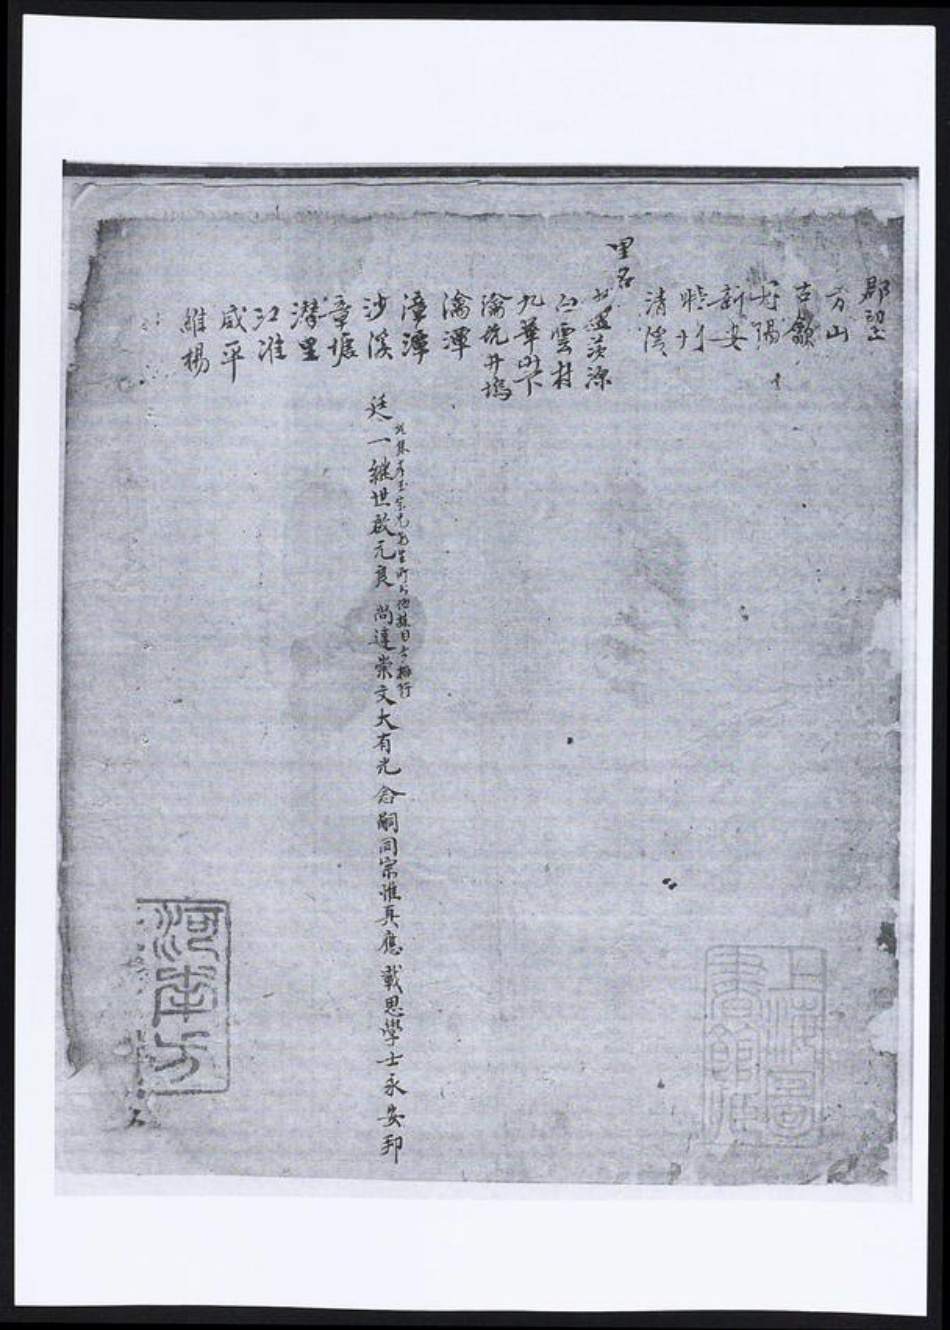 郡望
方山
古歙
丹陽
新安
清溪
里名
茨源
白雲村
九華山下
瀹坑井塢
瀹潭
漳潭
沙溪
章塘
潜里
江淮
咸平
維楊
廷一継世啟元良 尚達崇文大有光 念嗣同宗惟真應 載思學士永安邦
河南方
上海圖
書館藏